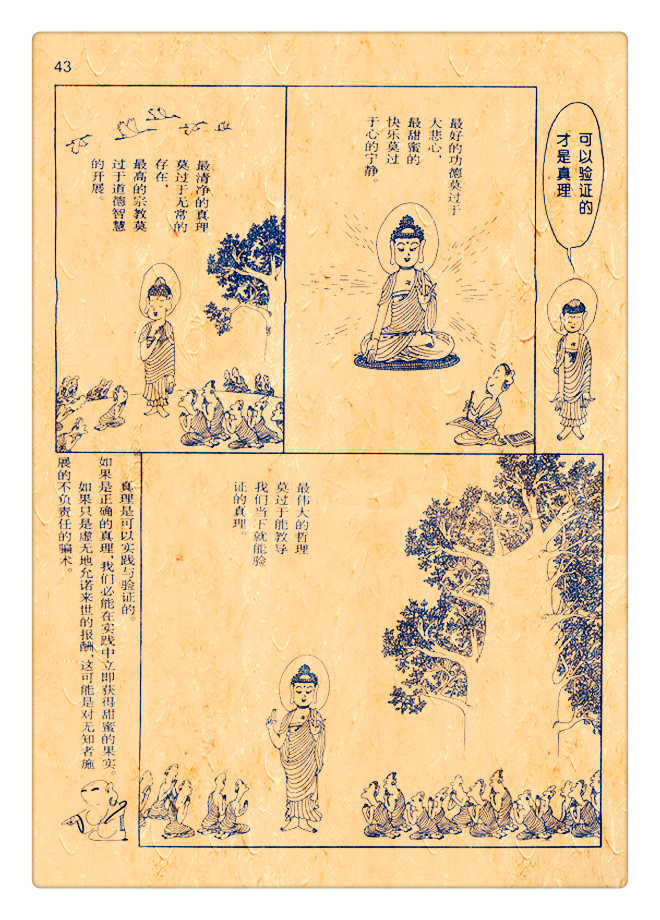 43
可以验证的
才是真理
最好的功德莫过于
大悲心，
最甜蜜的
快乐莫过
于心的宁静。
最清净的真理
莫过于无常的
存在，
最高的宗教莫
过于道德智慧
的开展。
最伟大的哲理
莫过于能教导
我们当下就能验
证的真理。
真理是可以实践与验证的。
如果是正确的真理，我们必能在实践中立即获得甜蜜的果实。
如果只是虚无地允诺来世的报酬，这可能是对无知者施
展的不负责任的骗术。